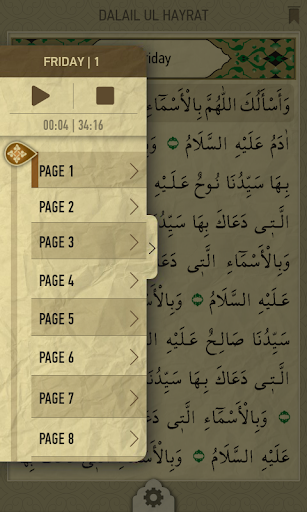 DALAIL UL HAYRAT
FRIDAY | 1
iday
00:04 | 34:16
PAGE 1
PAGE 2
PAGE 3
PAGE 4
PAGE 5
PAGE 6
PAGE 7
PAGE 8
وَأَسْأَلُكَ اللّٰهُمَّ بِالْأَسْمَآءِ
اٰدَمُ عَلَيْهِ السَّلَامُ
بِهَا سَيِّدُنَا نُوحٌ عَلَيْهِ
الَّتِى دَعَاكَ بِهَا سَيِّدُنَا
وَبِالْأَسْمَآءِ الَّتِى
عَلَيْهِ السَّلَامُ وَبِالْأَ
سَيِّدُنَا صَالِحٌ عَلَيْهِ
الَّتِى دَعَاكَ بِهَا سَيِّدُنَا
وَبِالْأَسْمَآءِ الَّتِى دَعَاكَ
عَلَيْهِ السَّلَامُ وَبِالْأَسْمَآءِ